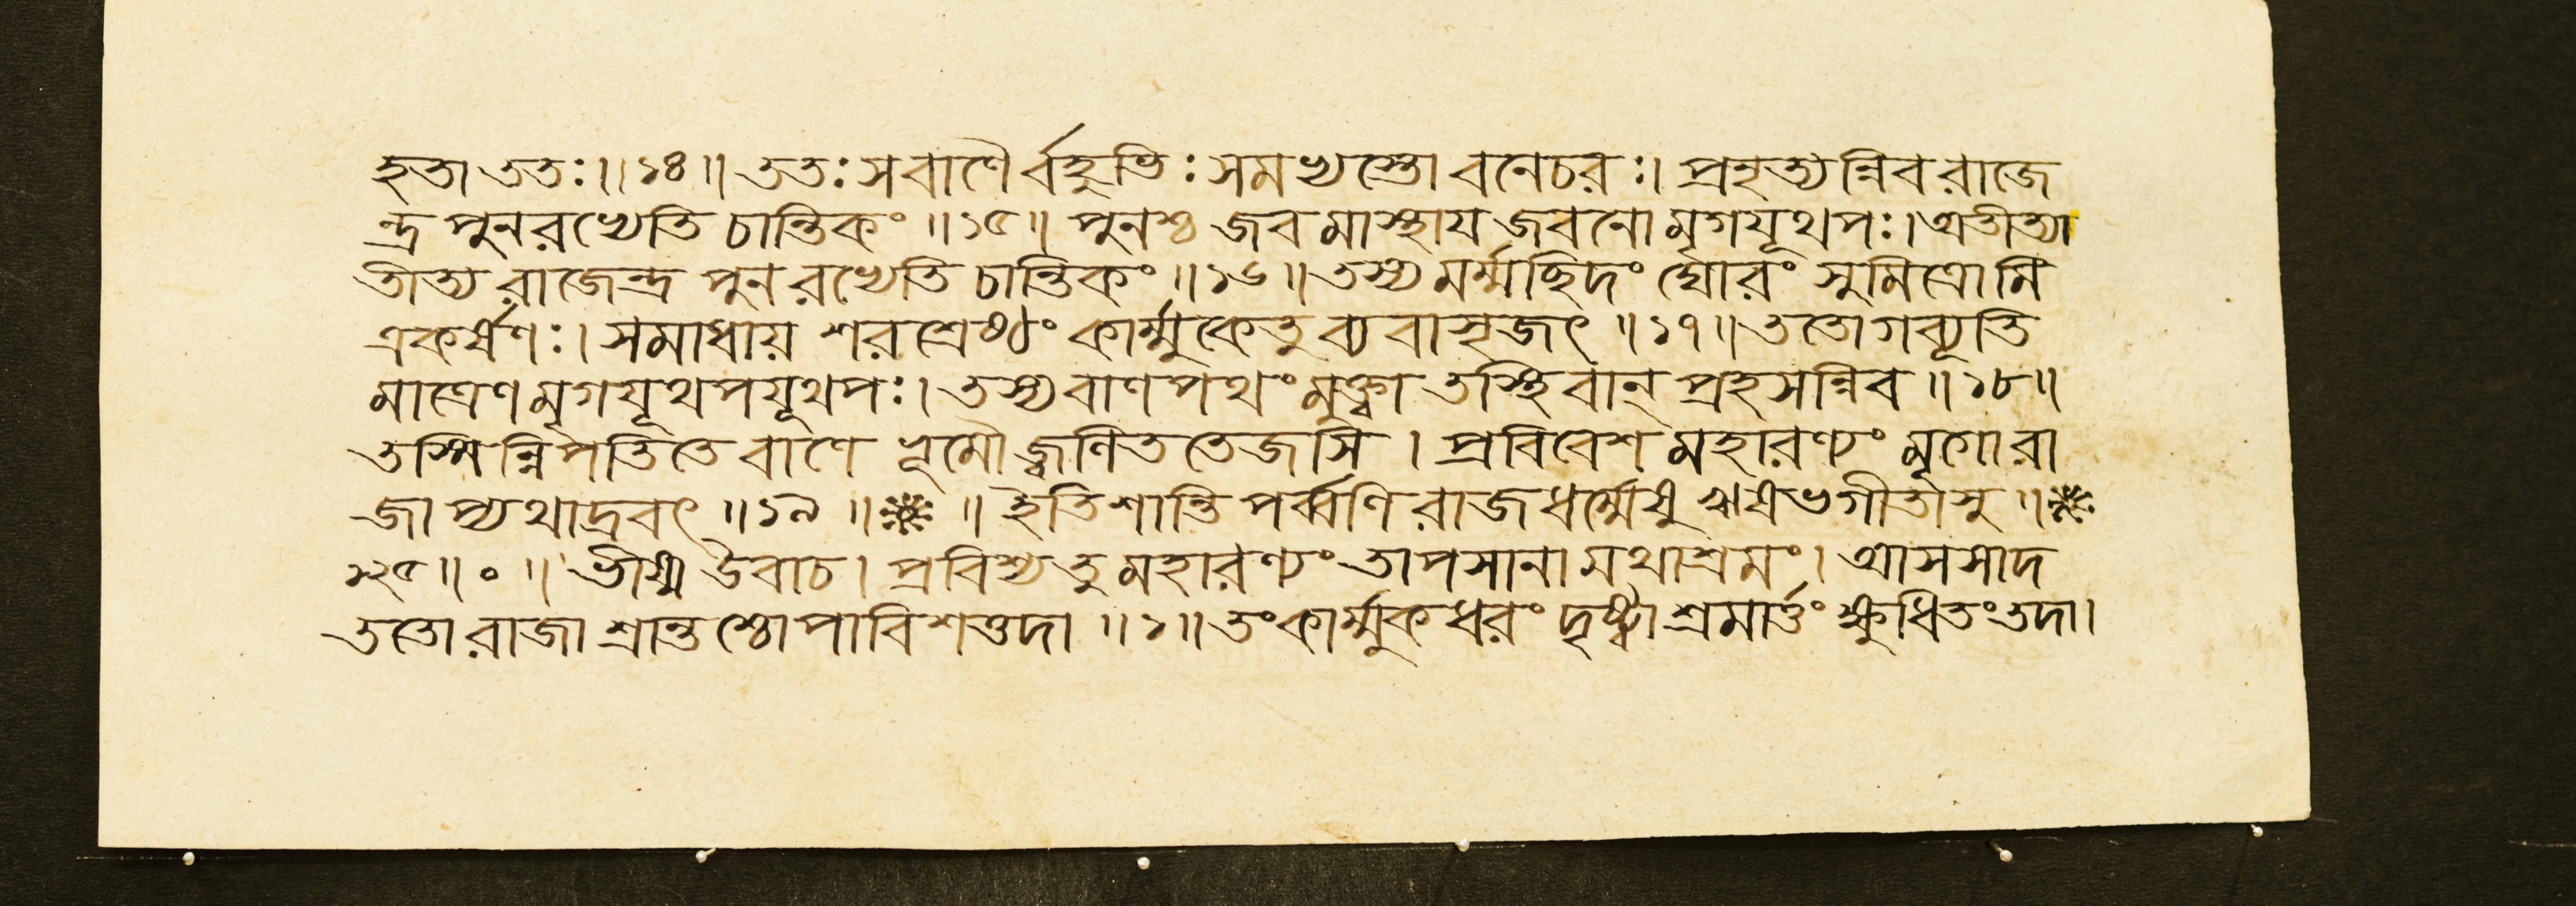 হতা ততঃ॥১৪॥ ততঃ সবাণৈর্বহুভিঃ সমভ্যস্তো বনেচরঃ। প্রহৃত্যন্নিব রাজে
ন্দ্র পুনরভ্যেতি চান্তিকং॥১৫॥ পুনশ্চ জবমাস্থায জবনো মৃগযূথপঃ। অতীত্যা
তীত্য রাজেন্দ্র পুনরভ্যেতি চান্তিকং॥১৬॥ তস্য মর্ম্মচ্ছিদং র্ঘোরং সুমিত্রোমি
ত্রকর্ষণঃ। সমাধায় শরশ্রেষ্ঠং কার্ম্মুকেতু ব্যবাসৃজৎ॥১৭॥ ততোগব্যূতি
মাত্রেণ মৃগযূথপযূথপঃ। তস্য বাণপথং মুক্ত্বা তস্থিবান্ প্রহসন্নিব॥১৮॥
তস্মিন্নিপতিতে বাণে ভূমৌ জ্বলিততেজসি। প্রবিবেশ মহারণ্যং মৃগোরা
জাপ্যথাদ্রবৎ॥১৯॥ ॥ ইতি শান্তিপর্ব্বণি রাজধর্ম্মেষু ঋষভগীতাসু॥
১২৫॥০॥ ভীষ্ম উবাচ। প্রবিশ্য তু মহারণ্যং তাপসানামথাশ্রমং। আসসাদ
ততো রাজা শ্রান্তশ্চোপাবিশত্তদা॥১॥ তং কার্ম্মুকধরং দৃষ্ট্বা শ্রমার্ত্তং ক্ষুধিতং তদা।